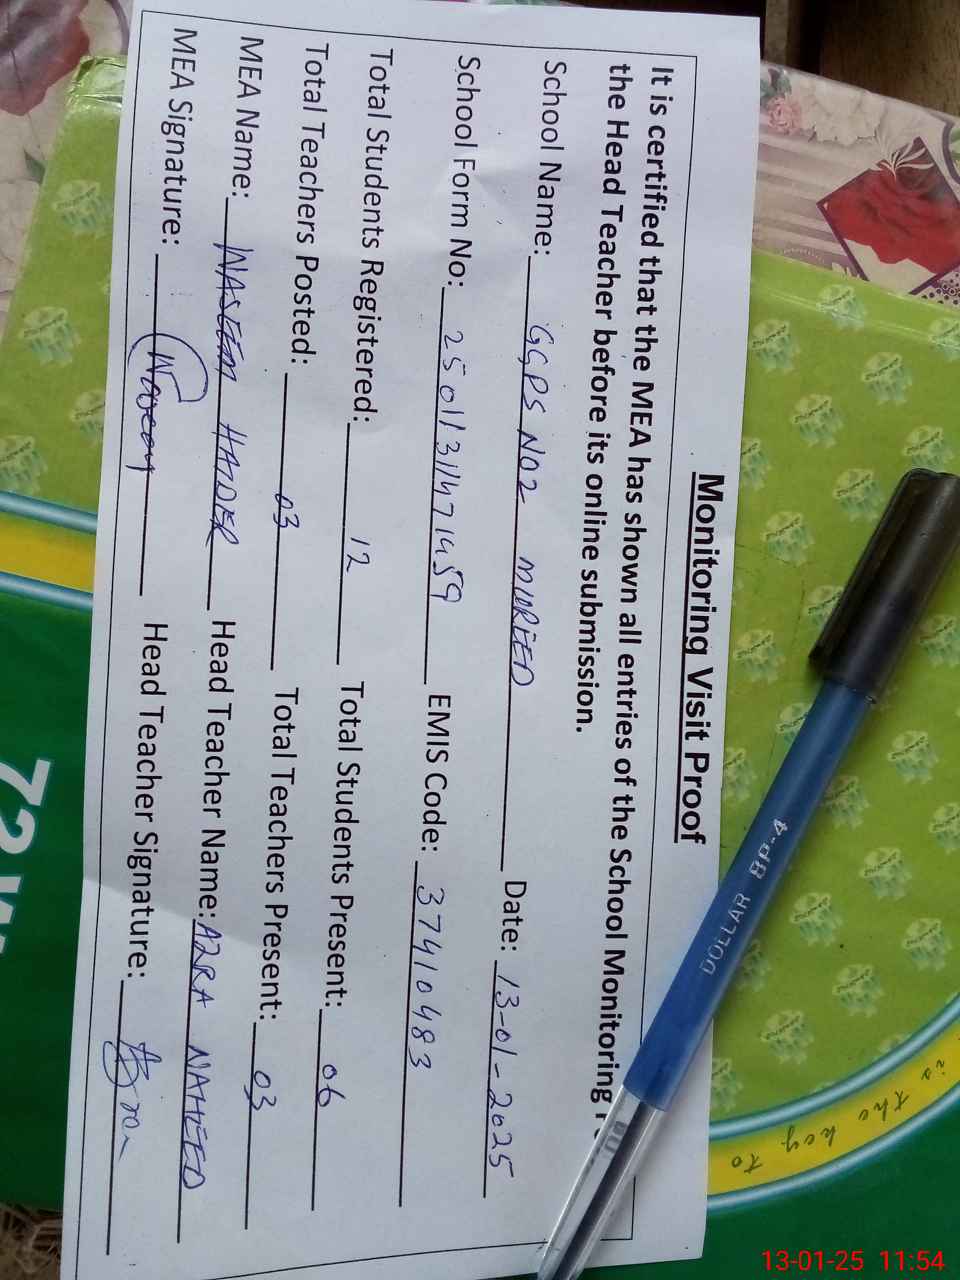 Monitoring Visit Proof
It is certified that the MEA has shown all entries of the School Monitoring
the Head Teacher before its online submission.
School Name: GGPS NO2 MUREED Date: 13-01-2025
School Form No: 25011311471459 EMIS Code: 37410483
Total Students Registered: 12 Total Students Present: 06
Total Teachers Posted: 03 Total Teachers Present: 03
MEA Name: WASEEM HAIDER Head Teacher Name: AZRA NAHEED
MEA Signature: Waseem Head Teacher Signature:
DOLLAR BP-4
is the key to
72
13-01-25 11:54